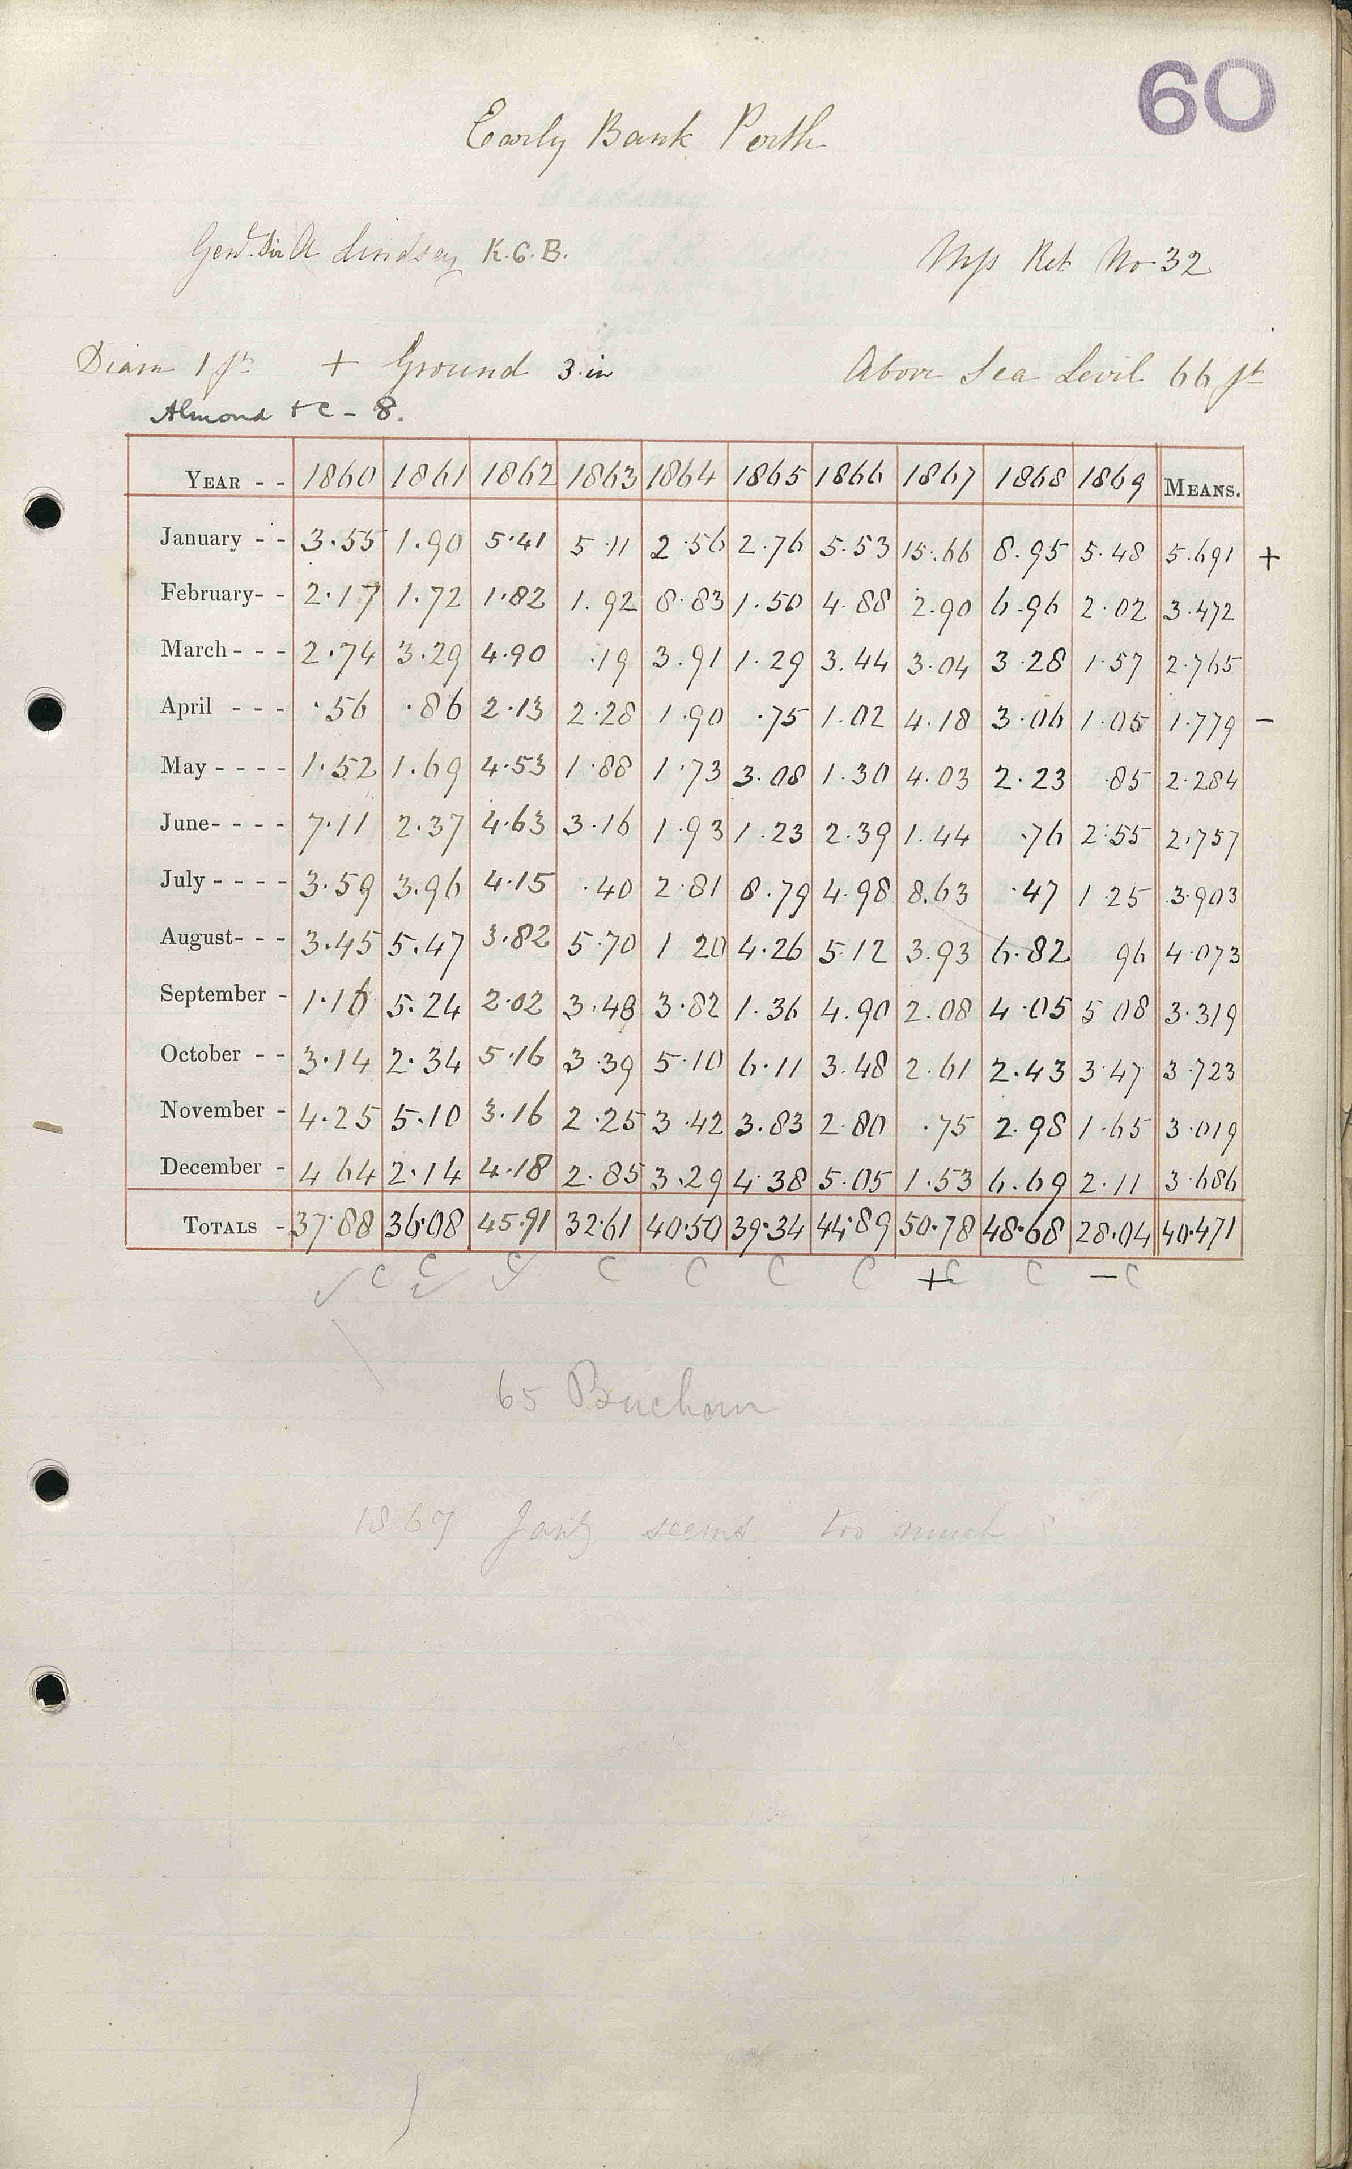 60
Early Bank Perth
Genl. Sir A Lindsay K.C.B. Mss Ret No 32
Diam 1 ft + Ground 3 in Above Sea Level 66 ft
Almond &c - 8.
YEAR - - 1860 1861 1862 1863 1864 1865 1866 1867 1868 1869 MEANS.
January - - 3.55 1.90 5.41 5.11 2.56 2.76 5.53 15.66 8.95 5.48 5.691 +
February - - 2.17 1.72 1.82 1.92 8.83 1.50 4.88 2.90 6.96 2.02 3.472
March - - - 2.74 3.29 4.90 .19 3.91 1.29 3.44 3.04 3.28 1.57 2.765
April - - - .56 .86 2.13 2.28 1.90 .75 1.02 4.18 3.06 1.05 1.779 -
May - - - - 1.52 1.69 4.53 1.88 1.73 3.08 1.30 4.03 2.23 .85 2.284
June - - - - 7.11 2.37 4.63 3.16 1.93 1.23 2.39 1.44 .76 2.55 2.757
July - - - - 3.59 3.96 4.15 .40 2.81 8.79 4.98 8.63 .47 1.25 3.903
August - - - 3.45 5.47 3.82 5.70 1 20 4.26 5.12 3.93 6.82 96 4.073
September - 1.16 5.24 2.02 3.48 3.82 1.36 4.90 2.08 4.05 5 08 3.319
October - - 3.14 2.34 5.16 3.39 5.10 6.11 3.48 2.61 2.43 3.47 3.723
November - 4.25 5.10 3.16 2.25 3.42 3.83 2.80 .75 2.98 1.65 3.019
December - 4 64 2.14 4.18 2.85 3.29 4.38 5.05 1.53 6.69 2.11 3.686
TOTALS - 37.88 36.08 45.91 32.61 40.50 39.34 44.89 50.78 48.68 28.04 40.471
✓ C C ✓ C ✓ C C C C + C C - C
65 Buchan
1867 Jany seems too much